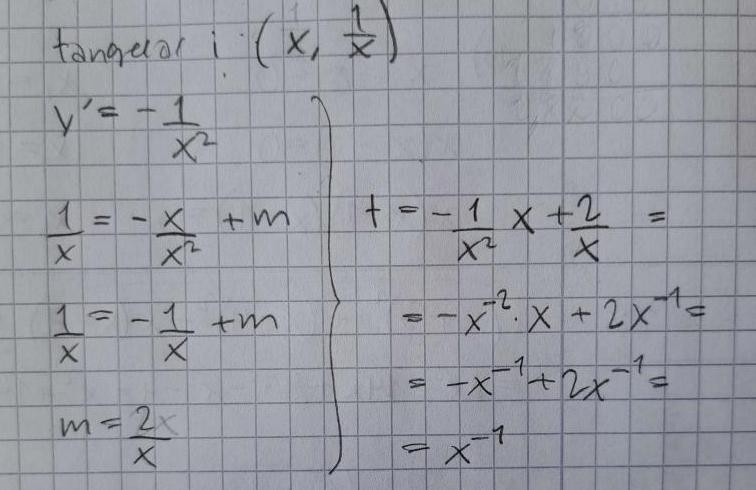 tangerar i (x, 1/x)
y' = - 1/x²
1/x = - x/x² + m
1/x = - 1/x + m
m = 2/x
t = - 1/x² x + 2/x =
= -x⁻² · x + 2x⁻¹ =
= -x⁻¹ + 2x⁻¹ =
= x⁻¹